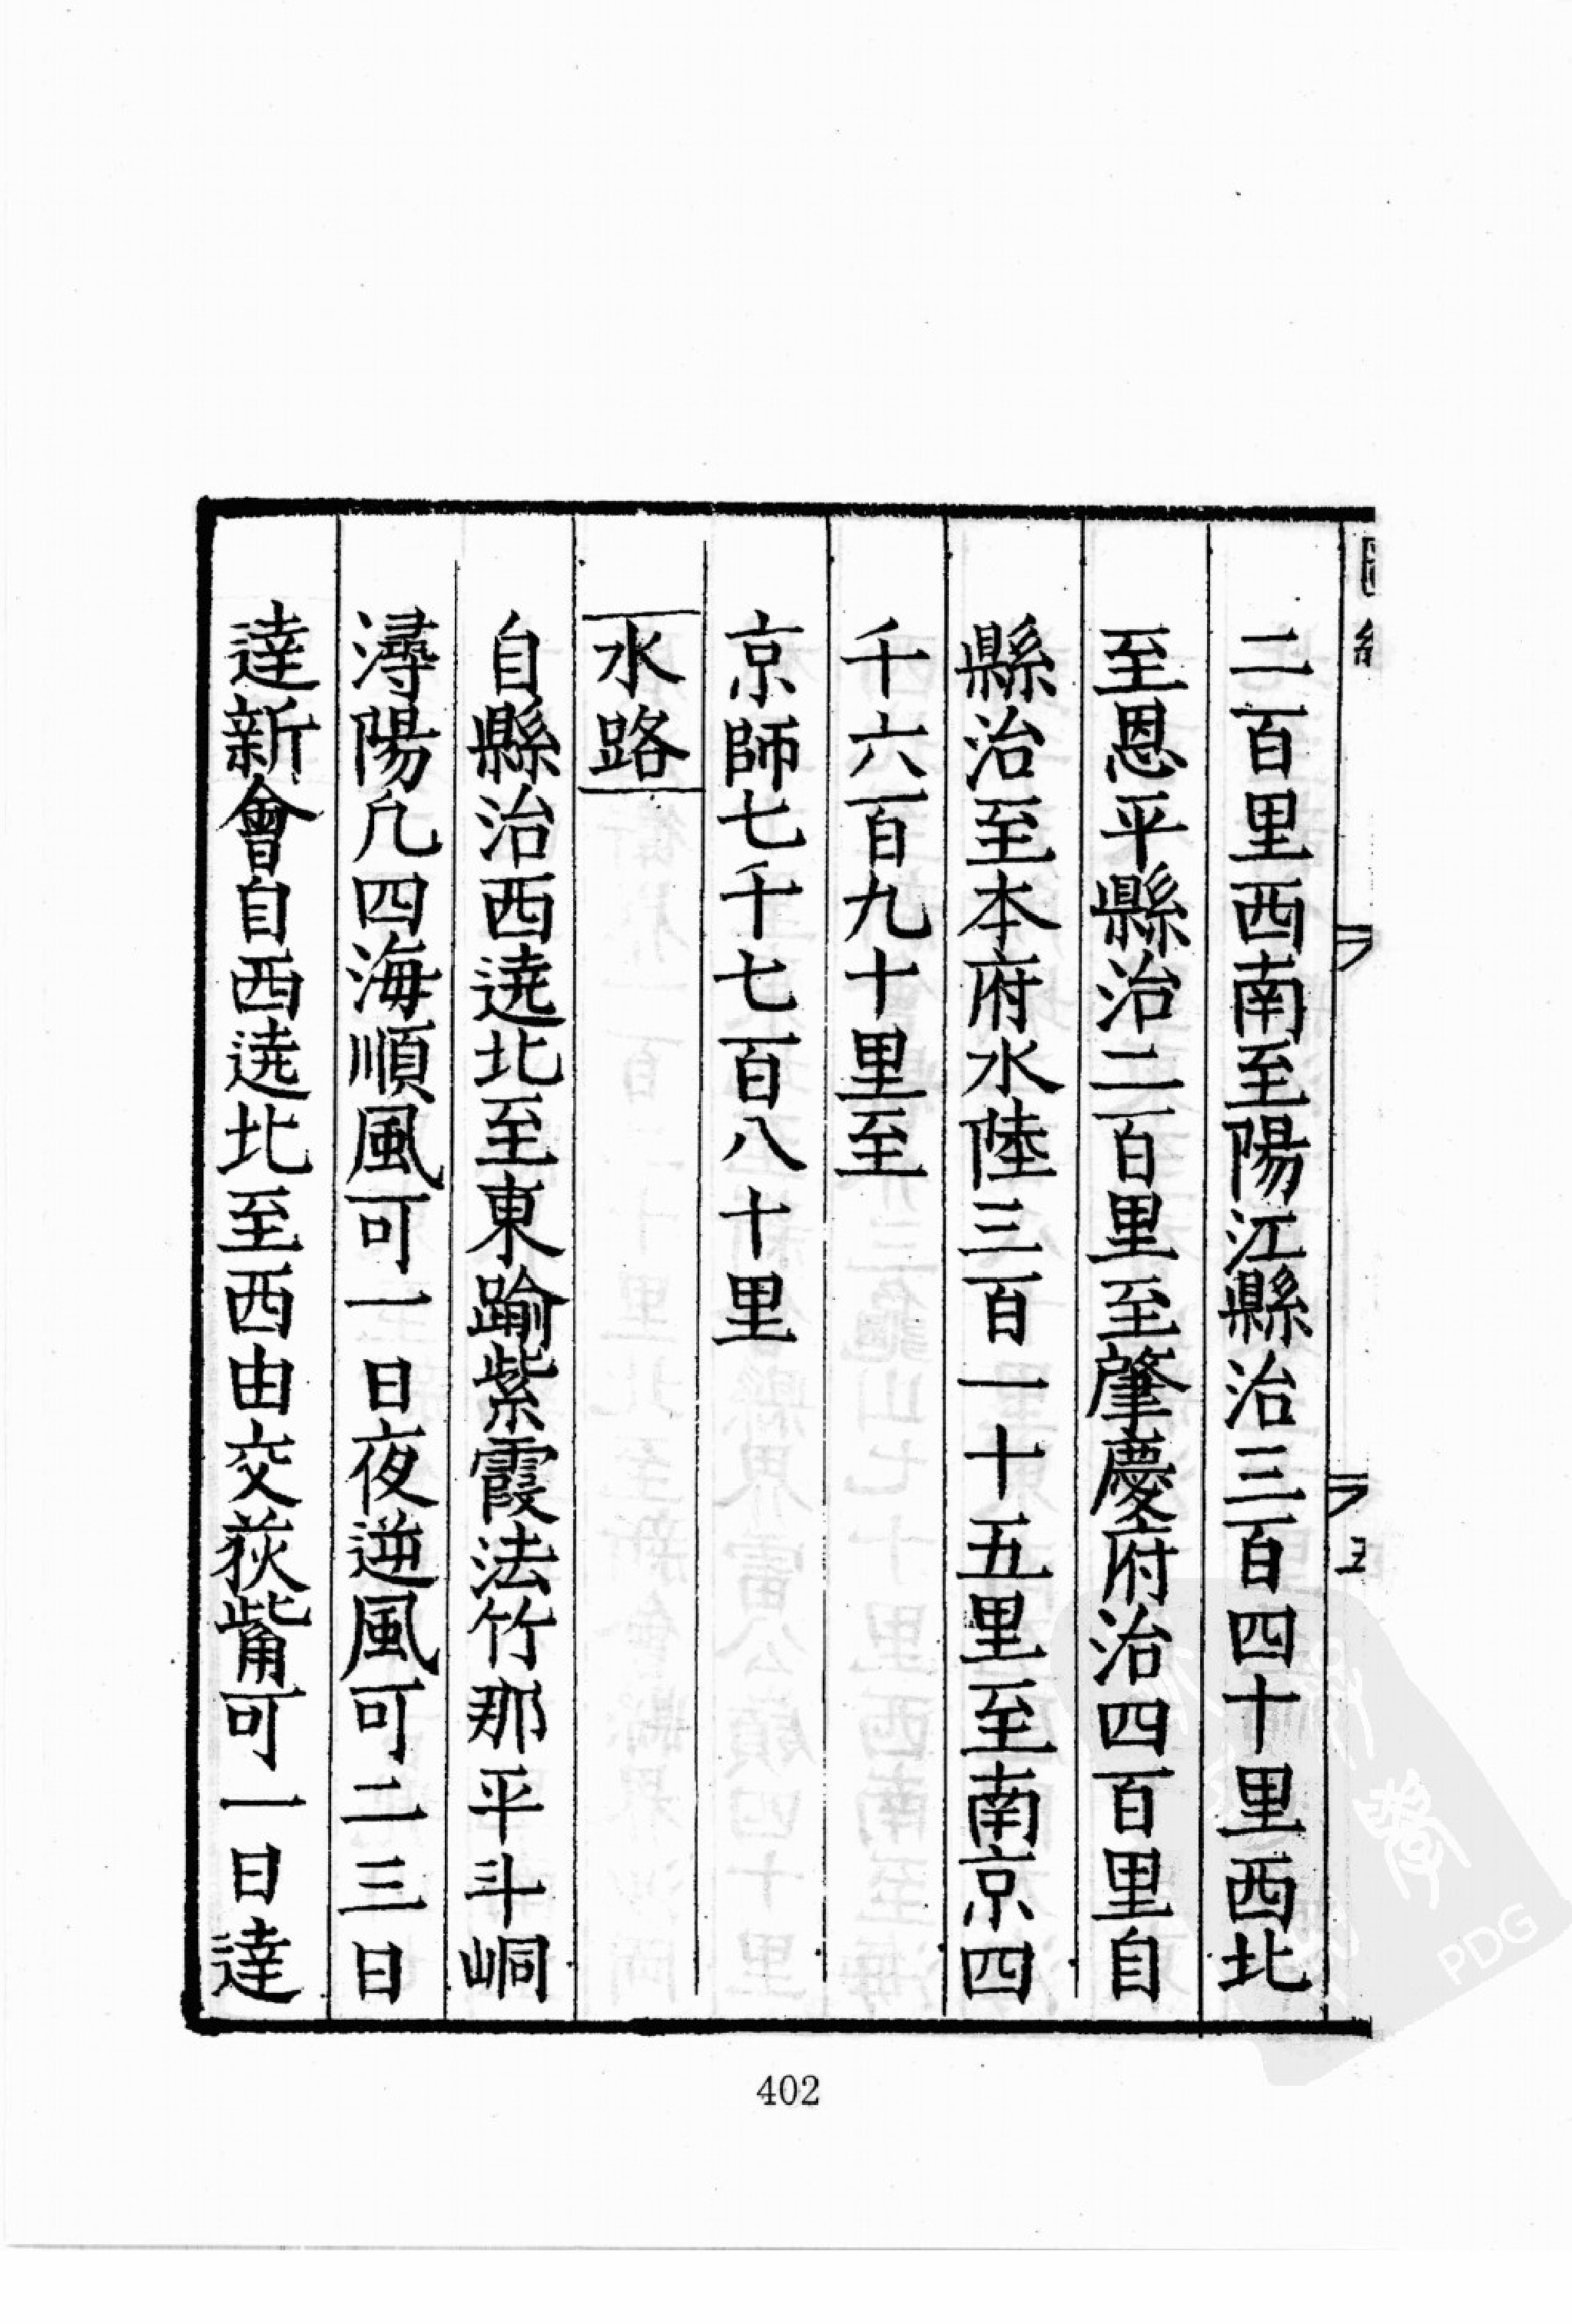 二百里西南至陽江縣治三百四十里西北
至恩平縣治二百里至肇慶府治四百里自
縣治至本府水陸三百一十五里至南京四
千六百九十里至
京師七千七百八十里
水路
自縣治西遶北至東踰紫霞法竹那平斗峒
潯陽凢四海順風可一日夜逆風可二三日
達新會自西遶北至西由交荻觜可一日達
402
PDG